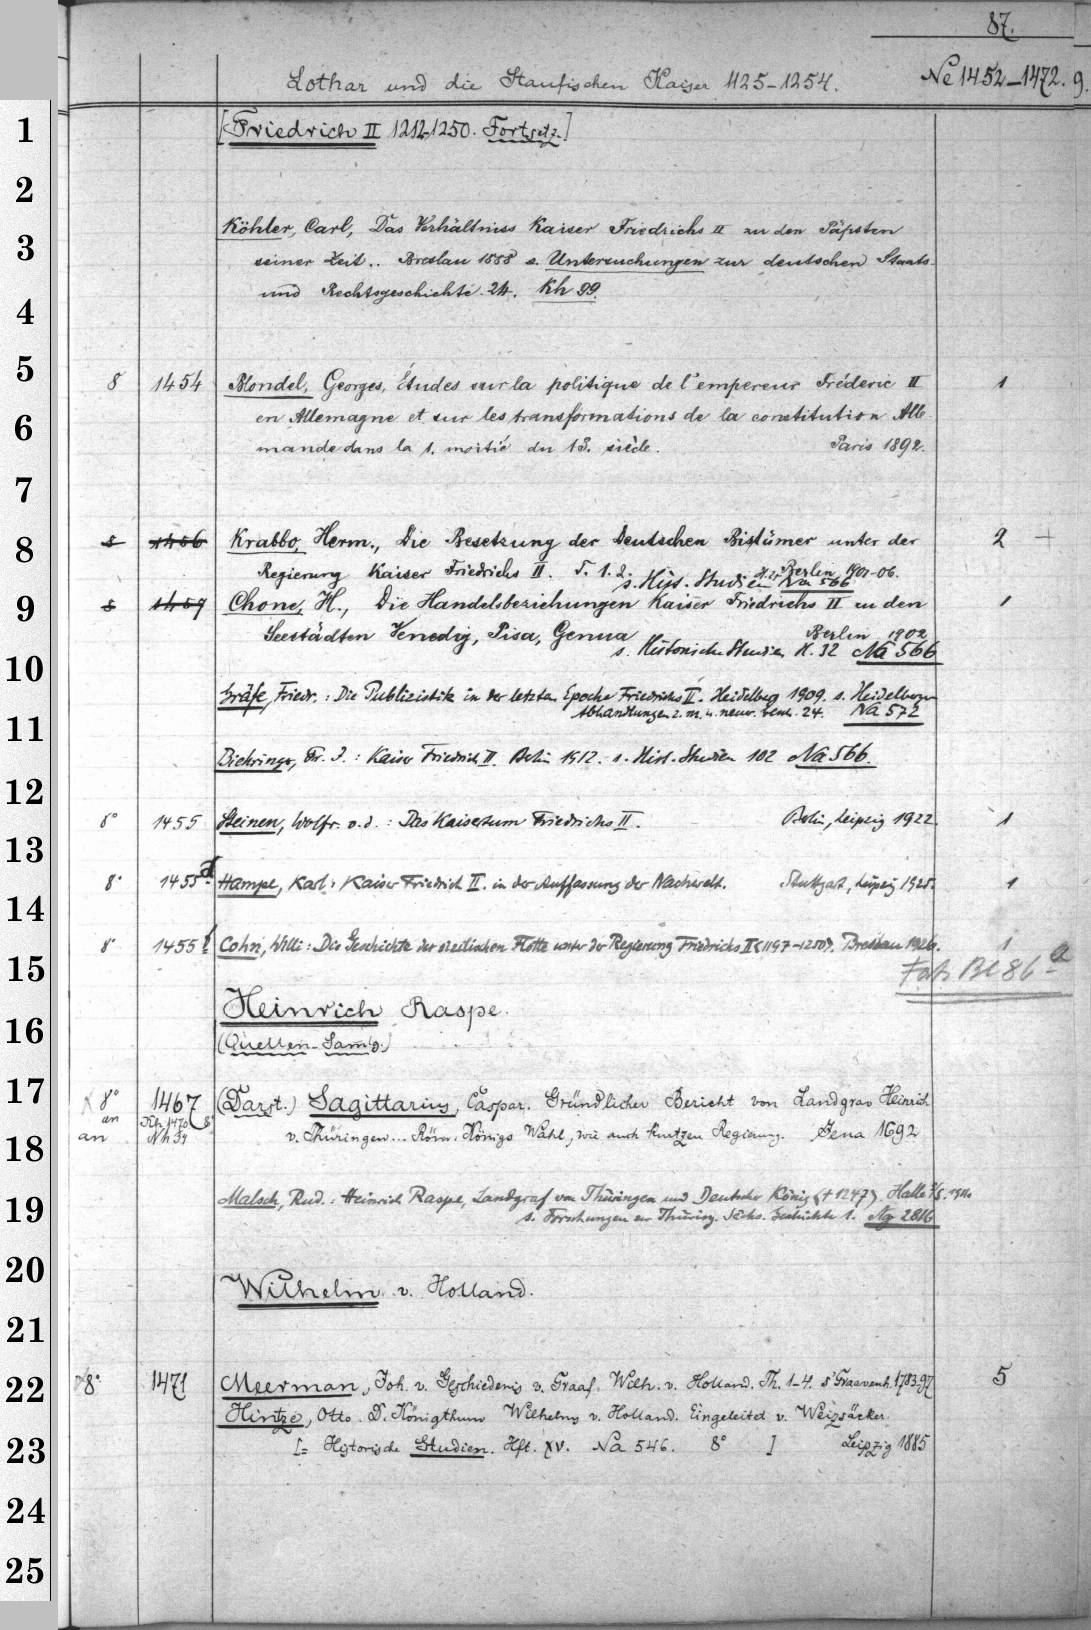 87.
Lothar und die Staufischen Kaiser 1125-1254. Ne 1452-1472. 9.
1 [Friedrich II 1212-1250. Fortsetz.]
2
Köhler, Carl, Das Verhältniss Kaiser Friedrichs II zu den Päpsten
3 seiner Zeit.. Breslau 1888 s. Untersuchungen zur deutschen Staats-
4 und Rechtsgeschichte. 24. Kh 99.
5 8 1454 Blondel, Georges, Études sur la politique de l'empereur Fréderic II 1
6 en Allemagne et sur les transformations de la constitution Alle-
mande dans la 1. moitié du 13. siècle. Paris 1892.
7
8 8 1456 Krabbo, Herm., Die Besetzung der Deutschen Bistümer unter der 2
Regierung Kaiser Friedrichs II. T. 1. 2. Berlin 1901-06.
s. Hist. Studien Na 566
9 8 1457 Chone, H., Die Handelsbeziehungen Kaiser Friedrichs II zu den 1
Seestädten Venedig, Pisa, Genua Berlin 1902
10 s. Historische Studien H. 32 Na 566
Gräfe, Friedr.: Die Publizistik in der letzten Epoche Friedrichs II. Heidelberg 1909. s. Heidelberger
11 Abhandlungen z. m. u. neuer. Gesch. 24. Na 572
Biehringer, Fr. J.: Kaiser Friedrich II. Berlin 1912. s. Hist. Studien 102 Na 566.
12 8° 1455 Steinen, Wolfr. v. d.: Das Kaisertum Friedrichs II. Berlin, Leipzig 1922. 1
13
14 8° 1455 a Hampe, Karl: Kaiser Friedrich II. in der Auffassung der Nachwelt. Stuttgart, Leipzig 1925. 1
8° 1455 Cohn, Willi: Die Geschichte der sizilischen Flotte unter der Regierung Friedrichs II (1197-1250). Breslau 1926. 1
15 Forts. Bl 86 a
16 Heinrich Raspe.
(Quellen-Samlg.)
17 8° 1467 (Darst.) Sagittarius, Caspar. Gründlicher Bericht von Landgrav Heinrich
an
18 an Nh 39 v. Thüringen... Röm. Königs Wahl, wie auch kurtzen Regierung. Jena 1692
19 Malsch, Rud.: Heinrich Raspe, Landgraf von Thüringen und Deutscher König († 1247). Halle a/S. 1911.
s. Forschungen zur Thüring. Sächs. Geschichte 1. Ng 2816
20 Wilhelm v. Holland.
21
22 8° 1471 Meerman, Joh. v. Geschiedenis v. Graaf. Wilh. v. Holland. Th. 1-4. s'Graavenh. 1783-97 5
Hintze, Otto. D. Königthum Wilhelms v. Holland. Eingeleitet v. Weizsäcker.
23 [= Historische Studien. Hft. XV. Na 546. 8° ] Leipzig 1885
24
25